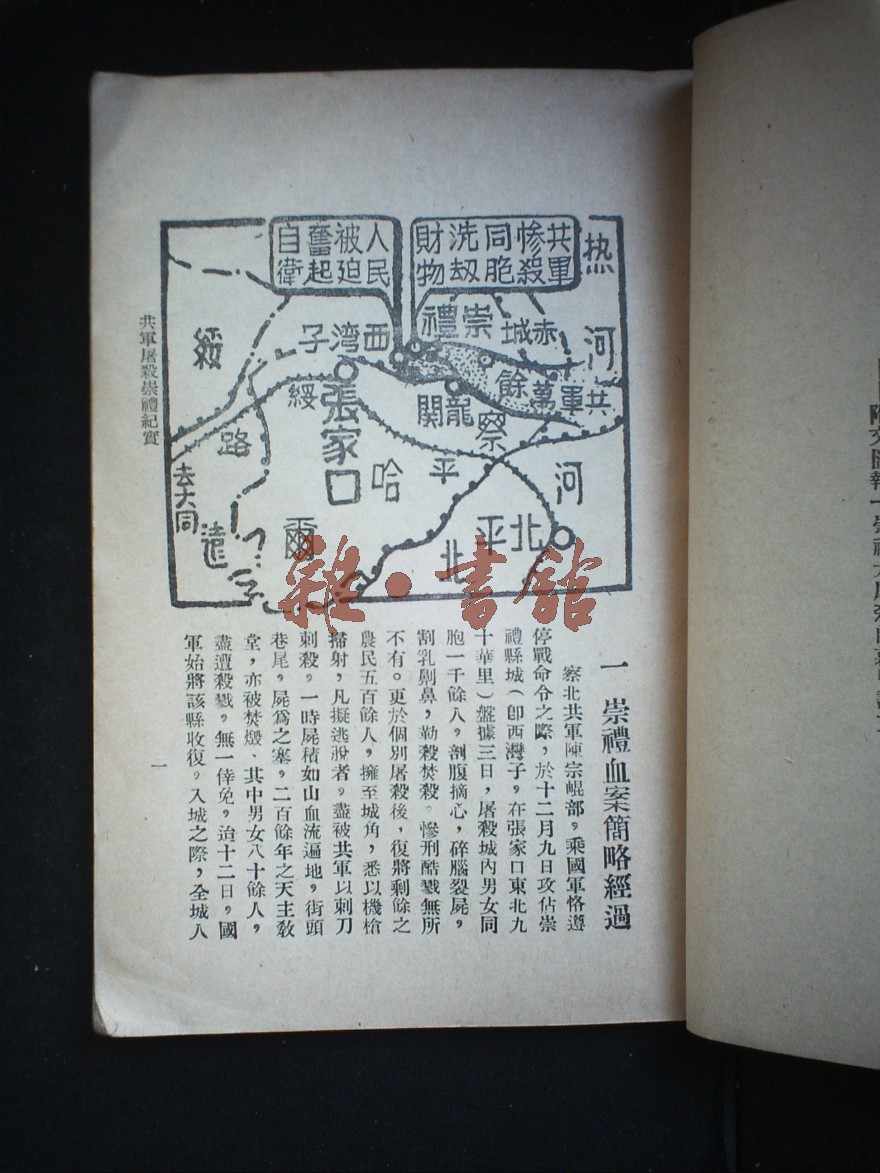 共軍屠殺崇禮紀實
共軍
慘殺
同胞
洗劫
財物
人民
被迫
奮起
自衛
热
河
赤城
崇禮
西湾子
共軍萬餘
龍関
張家口
平
綏
路
察
哈
爾
綏
遠
去大同
河
北
北平
雜·書館
一 崇禮血案簡略經過
察北共軍陳宗崐部，乘國軍恪遵
停戰命令之際，於十二月九日攻佔崇
禮縣城（卽西灣子，在張家口東北九
十華里）盤據三日，屠殺城內男女同
胞一千餘人，剖腹摘心，碎腦裂屍，
割乳刵鼻，勒殺焚殺。慘刑酷戮無所
不有。更於個別屠殺後，復將剩餘之
農民五百餘人，擁至城角，悉以機槍
掃射，凡擬逃脫者。盡被共軍以刺刀
刺殺。一時屍積如山血流遍地，街頭
巷尾，屍爲之塞，二百餘年之天主敎
堂，亦被焚燬、其中男女八十餘人，
盡遭殺戮，無一倖免，迨十二日，國
軍始將該縣收復。入城之際，全城人
一